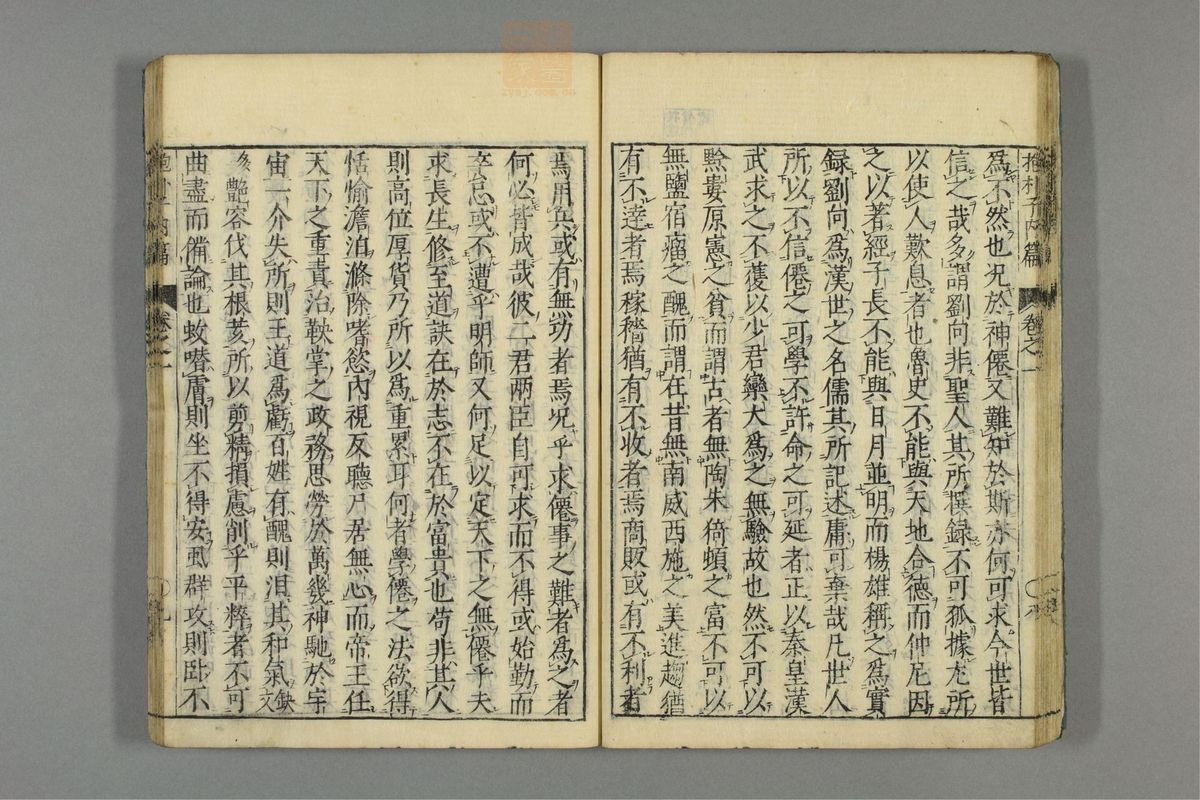 抱朴子內篇 卷之一
爲不然也况於神僊又難知於斯亦何可求今世皆
信之哉多謂劉向非聖人其所撰録不可孤據尤所
以使人歎息者也魯史不能與天地合德而仲尼因
之以著經子長不能與日月並明而楊雄稱之爲實
録劉向爲漢世之名儒其所記述庸可棄哉凡世人
所以不信僊之可學不許命之可延者正以秦皇漢
武求之不獲以少君欒大爲之無驗故也然不可以
黔婁原憲之貧而謂古者無陶朱猗頓之富不可以
無鹽宿瘤之醜而謂在昔無南威西施之美進趨猶
有不達者焉稼穡猶有不收者焉商販或有不利者
焉用兵或有無功者焉况乎求僊事之難者爲之者
何必皆成哉彼二君兩臣自可求而不得或始勤而
卒怠或不遭乎明師又何足以定天下之無僊乎夫
求長生修至道訣在於志不在於富貴也苟非其人
則高位厚貨乃所以爲重累耳何者學僊之法欲得
恬愉澹泊滌除嗜慾內視反聽尸居無心而帝王任
天下之重責治鞅掌之政務思勞於萬幾神馳於宇
宙一介失所則王道爲虧百姓有醜則泪其和氣缺文
艶容伐其根荄所以剪精損慮削乎平粹者不可
曲盡而備論也蚊噆膚則坐不得安虱群攻則臥不
抱朴子內篇 卷之一